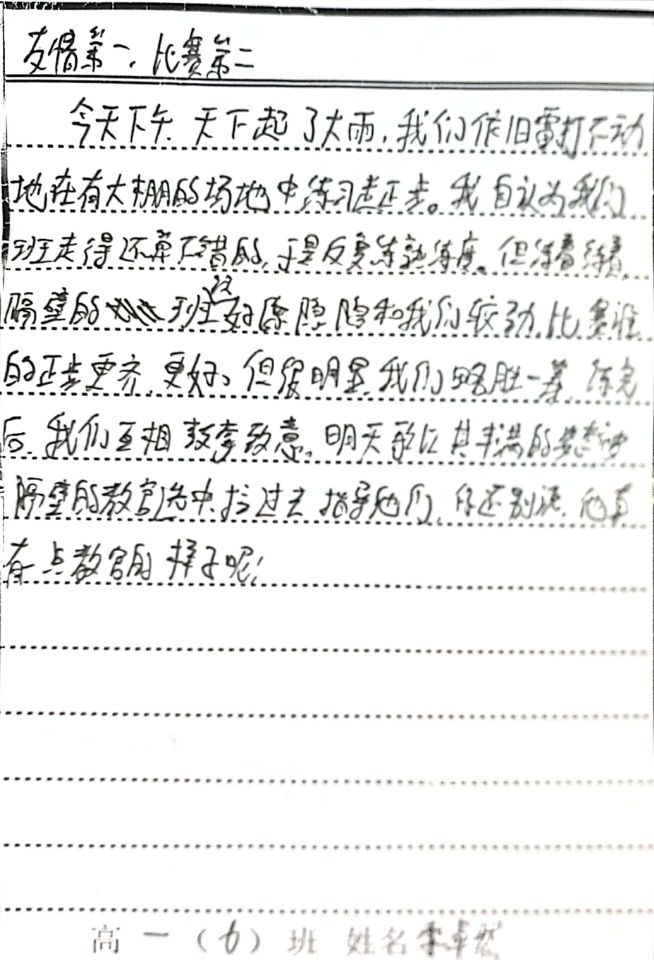 友情第一,比赛第二
今天下午,天下起了大雨,我们依旧雷打不动
地在有大棚的场地中练习走正步。我自认为我们
班走得还算不错的,于是反复练熟练度。但练着练着,
隔壁的班级好像隐隐和我们较劲,比赛谁
的正步更齐,更好。但很明显,我们略胜一筹,练完
后,我们互相敬礼致意。明天
隔壁的教官选中,拉过去指导他们,你还别说,他真
有点教官的样子呢!
高一(6)班 姓名